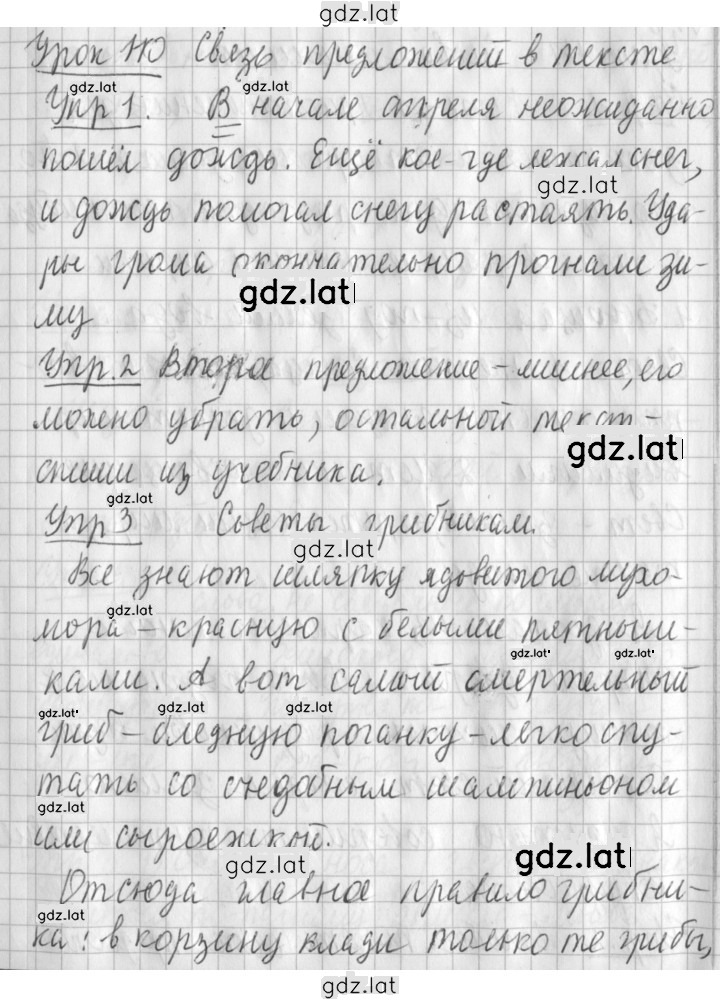 gdz.lat
Урок 110 Связь предложений в тексте
gdz.lat gdz.lat
Упр 1. В начале апреля неожиданно
пошёл дождь. Ещё кое-где лежал снег,
gdz.lat
и дождь помогал снегу растаять. Уда-
ры грома окончательно прогнали зи-
gdz.lat
му
Упр. 2 Второе предложение - лишнее, его
можно убрать, остальной текст -
gdz.lat
спиши из учебника.
gdz.lat
Упр 3 Советы грибникам.
gdz.lat
Все знают шляпку ядовитого мухо-
gdz.lat
мора - красную с белыми пятныш-
gdz.lat gdz.lat
ками. А вот самый смертельный
gdz.lat gdz.lat gdz.lat
гриб - бледную поганку - легко спу-
тать со съедобным шампиньоном
gdz.lat
или сыроежкой.
gdz.lat gdz.lat
Отсюда главное правило грибни-
gdz.lat
ка: в корзину клади только те грибы,
gdz.lat